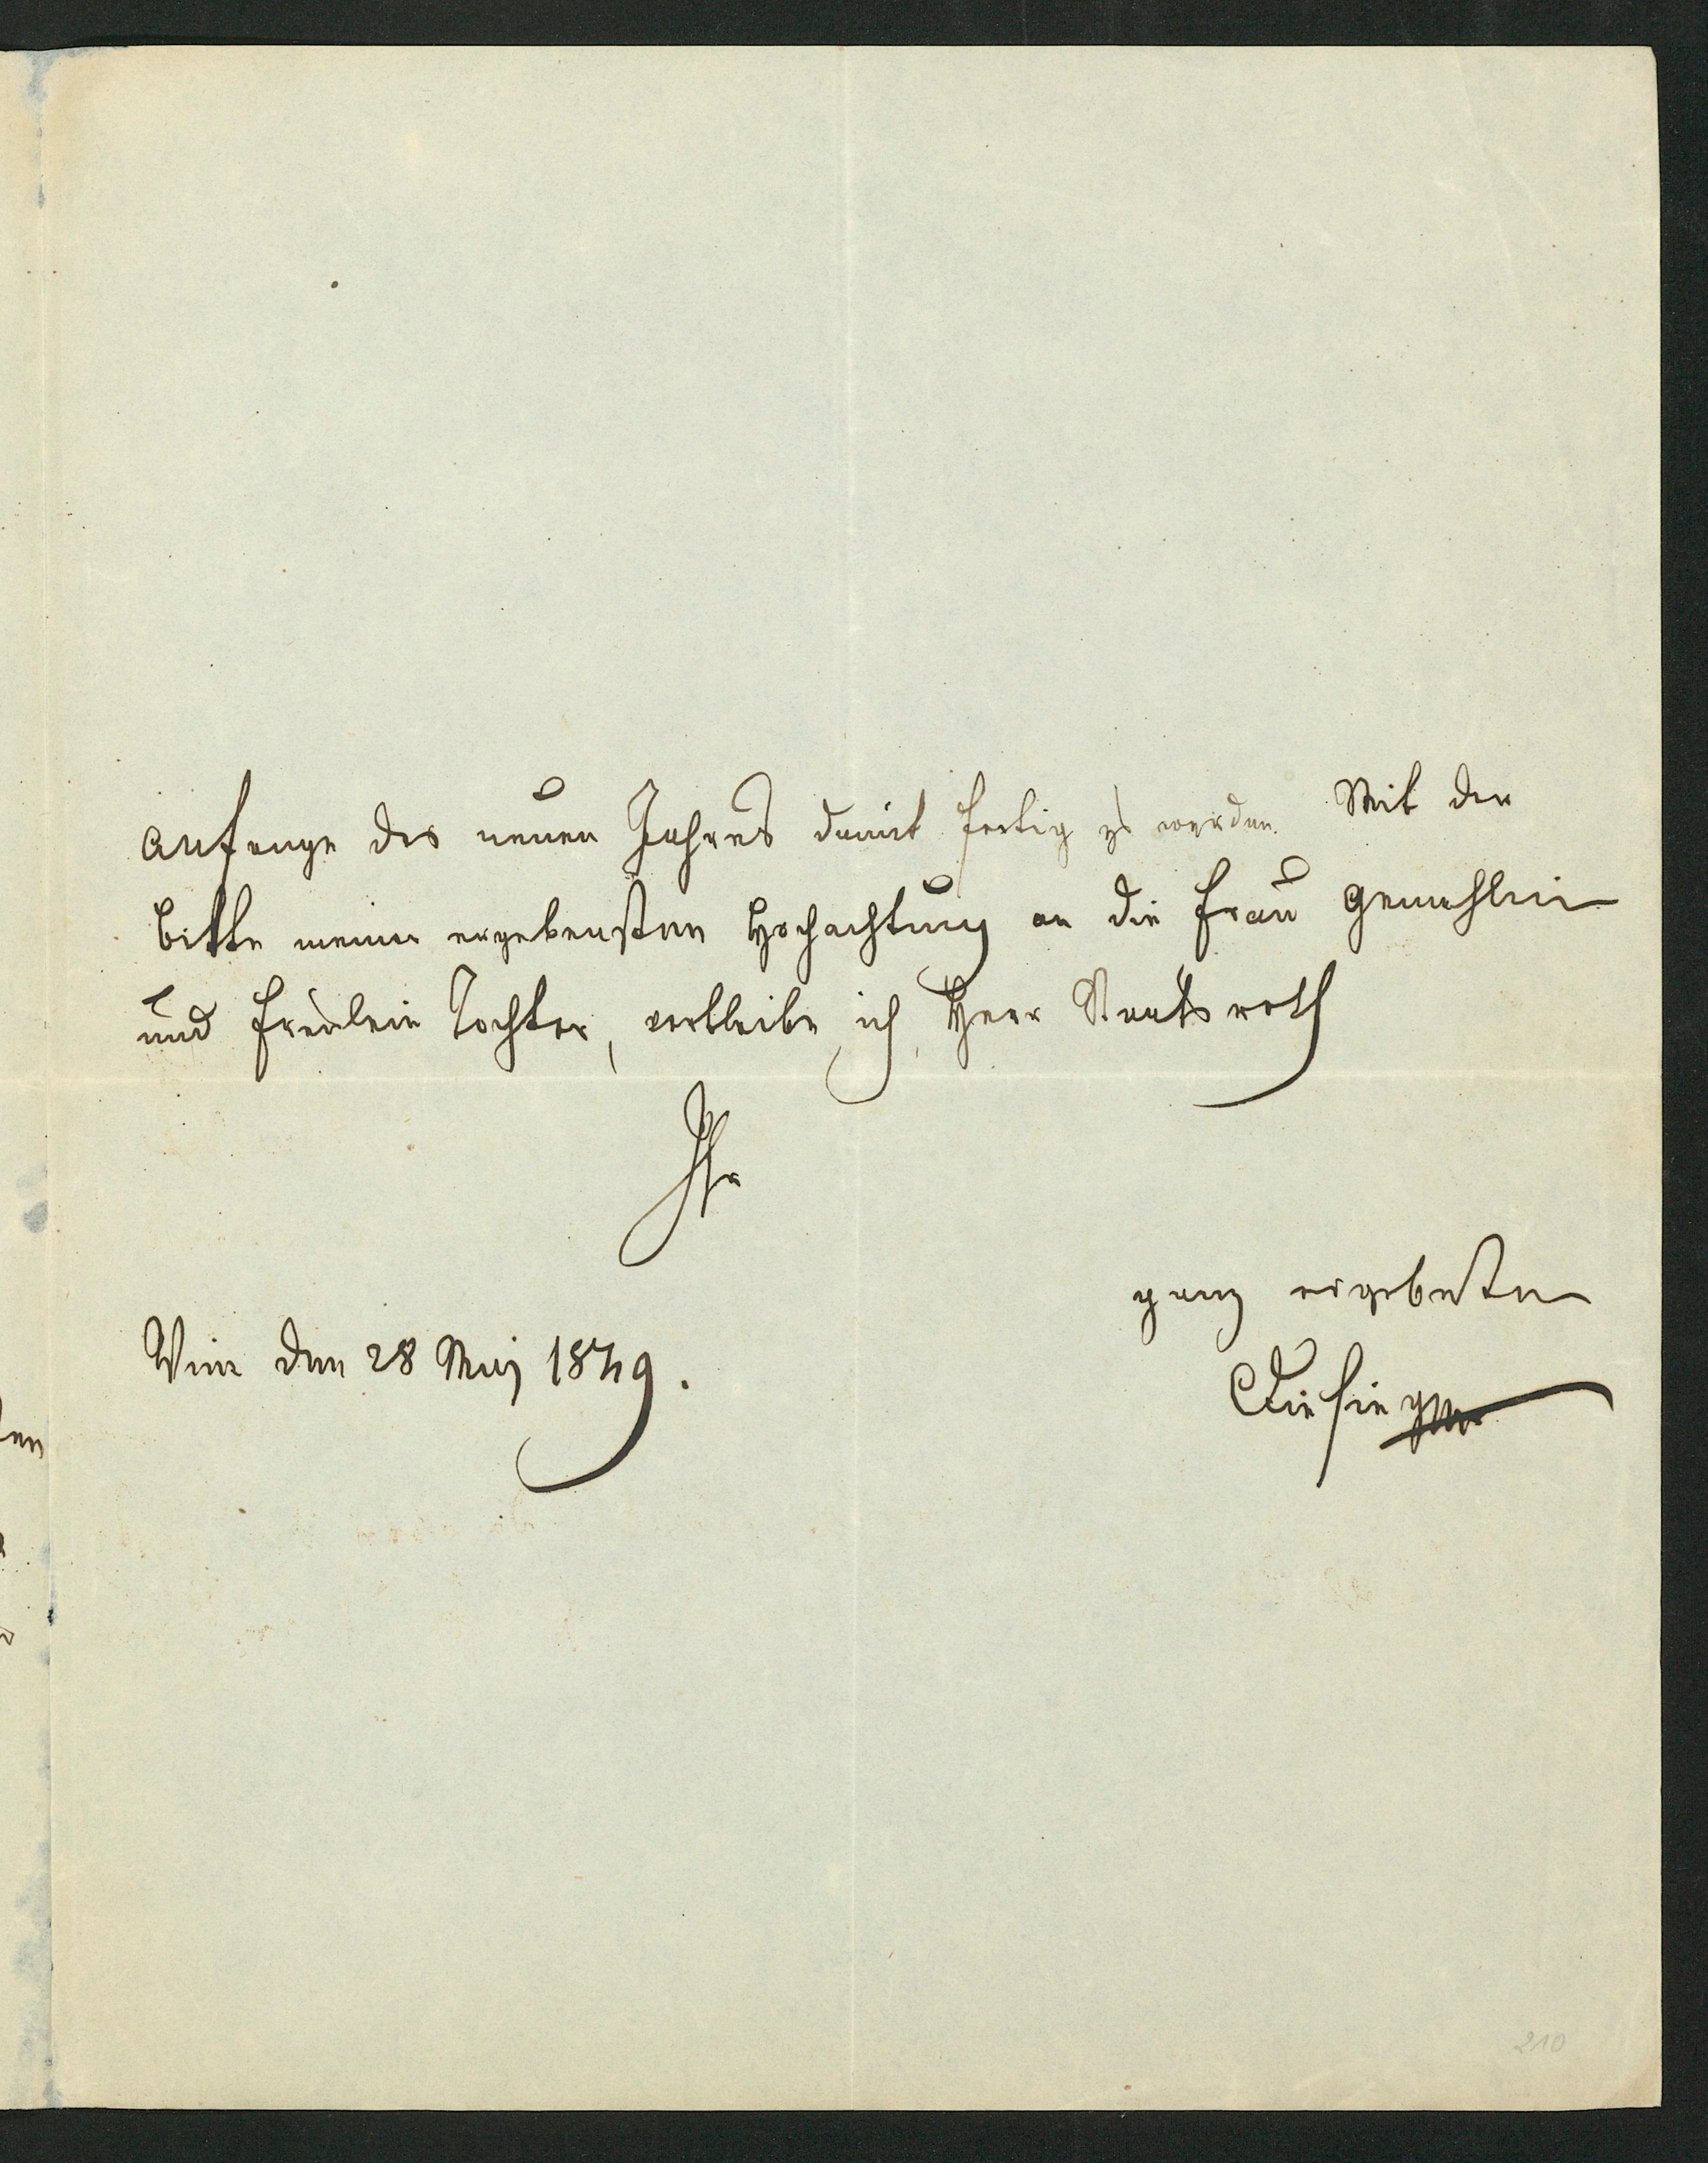 Anfange des neuen Jahres damit fertig zu werden. Mit der
Bitte meiner ergebensten Hochachtung an die Frau Gemahlin
und Fräulein Tochter, verbleibe ich, Herr Staatsrath
Ihr
ganz ergebenster
Wien den 28 Mai 1849.
Diesing
210